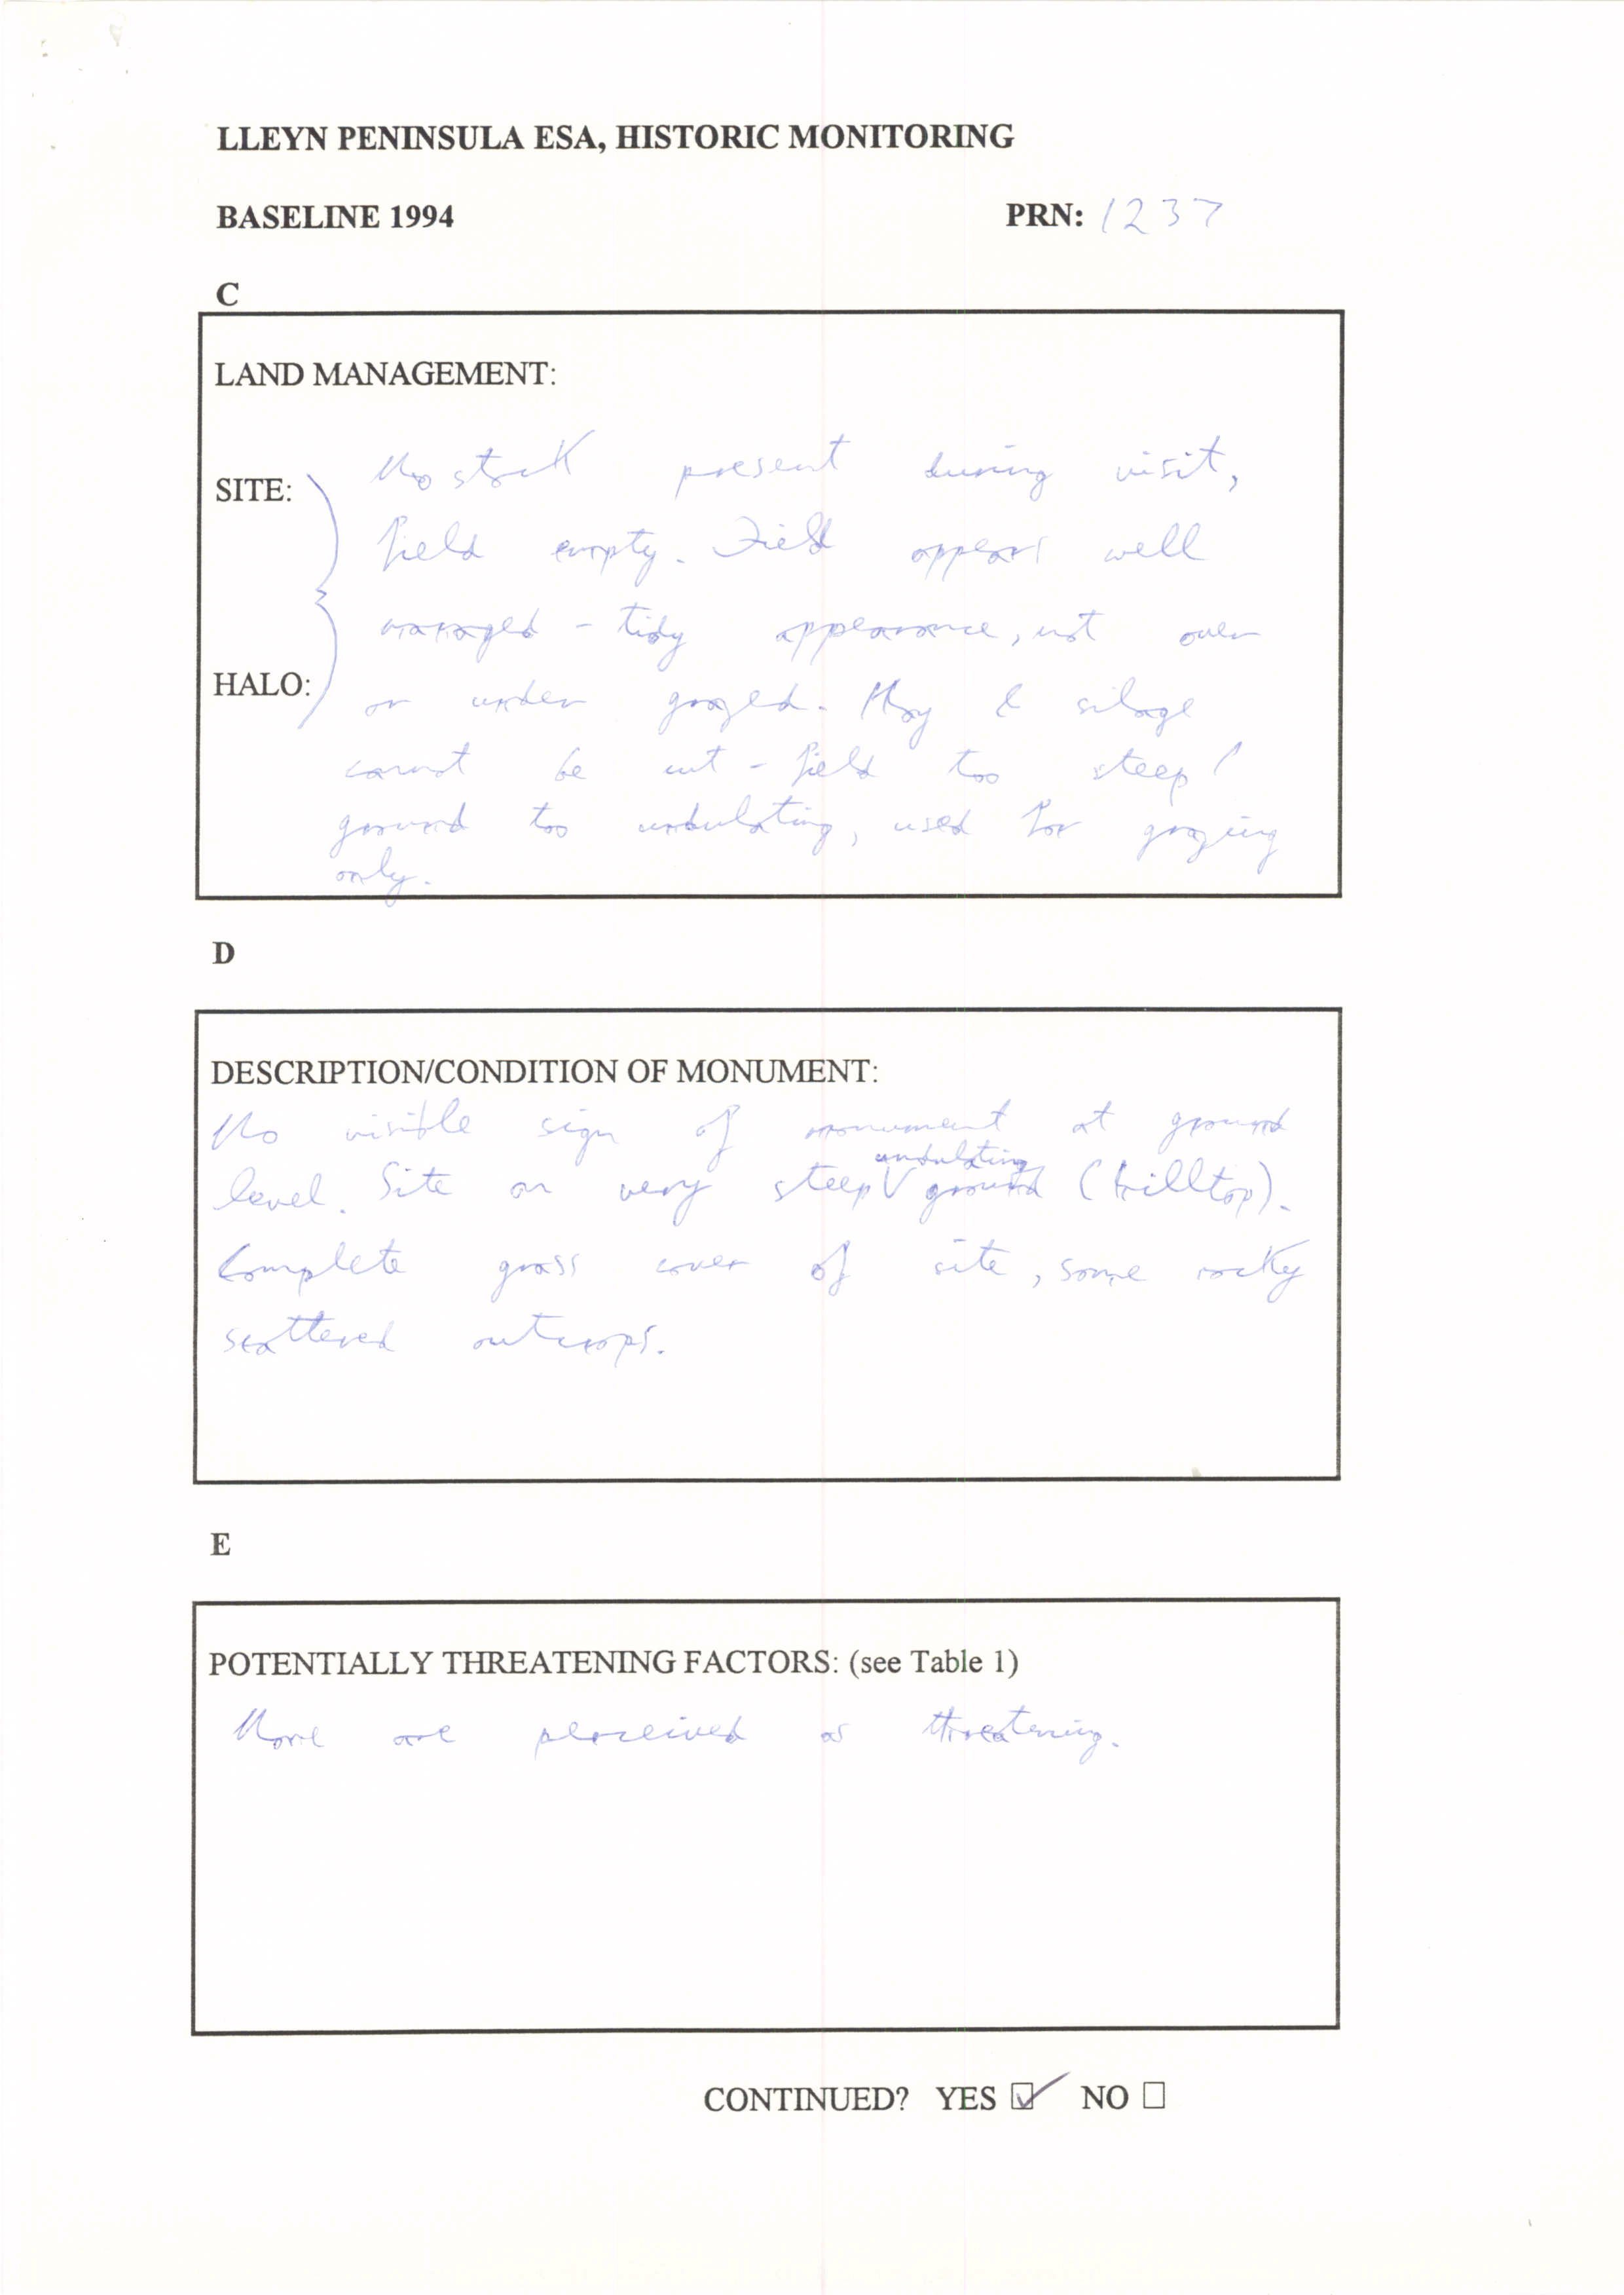 LLEYN PENINSULA ESA, HISTORIC MONITORING
BASELINE 1994 PRN: 1237
C
LAND MANAGEMENT:
SITE: No stock present during visit,
field empty. Field appears well
managed - tidy appearance, not over
HALO: or under grazed. Hay & silage
cannot be cut - field too steep /
ground too undulating, used for grazing
only.
D
DESCRIPTION/CONDITION OF MONUMENT:
No visible sign of monument at ground
undulating
level. Site on very steep V ground (hilltop).
Complete grass cover of site, some rocky
scattered outcrops.
E
POTENTIALLY THREATENING FACTORS: (see Table 1)
None are perceived as threatening.
CONTINUED? YES ☑ NO ☐